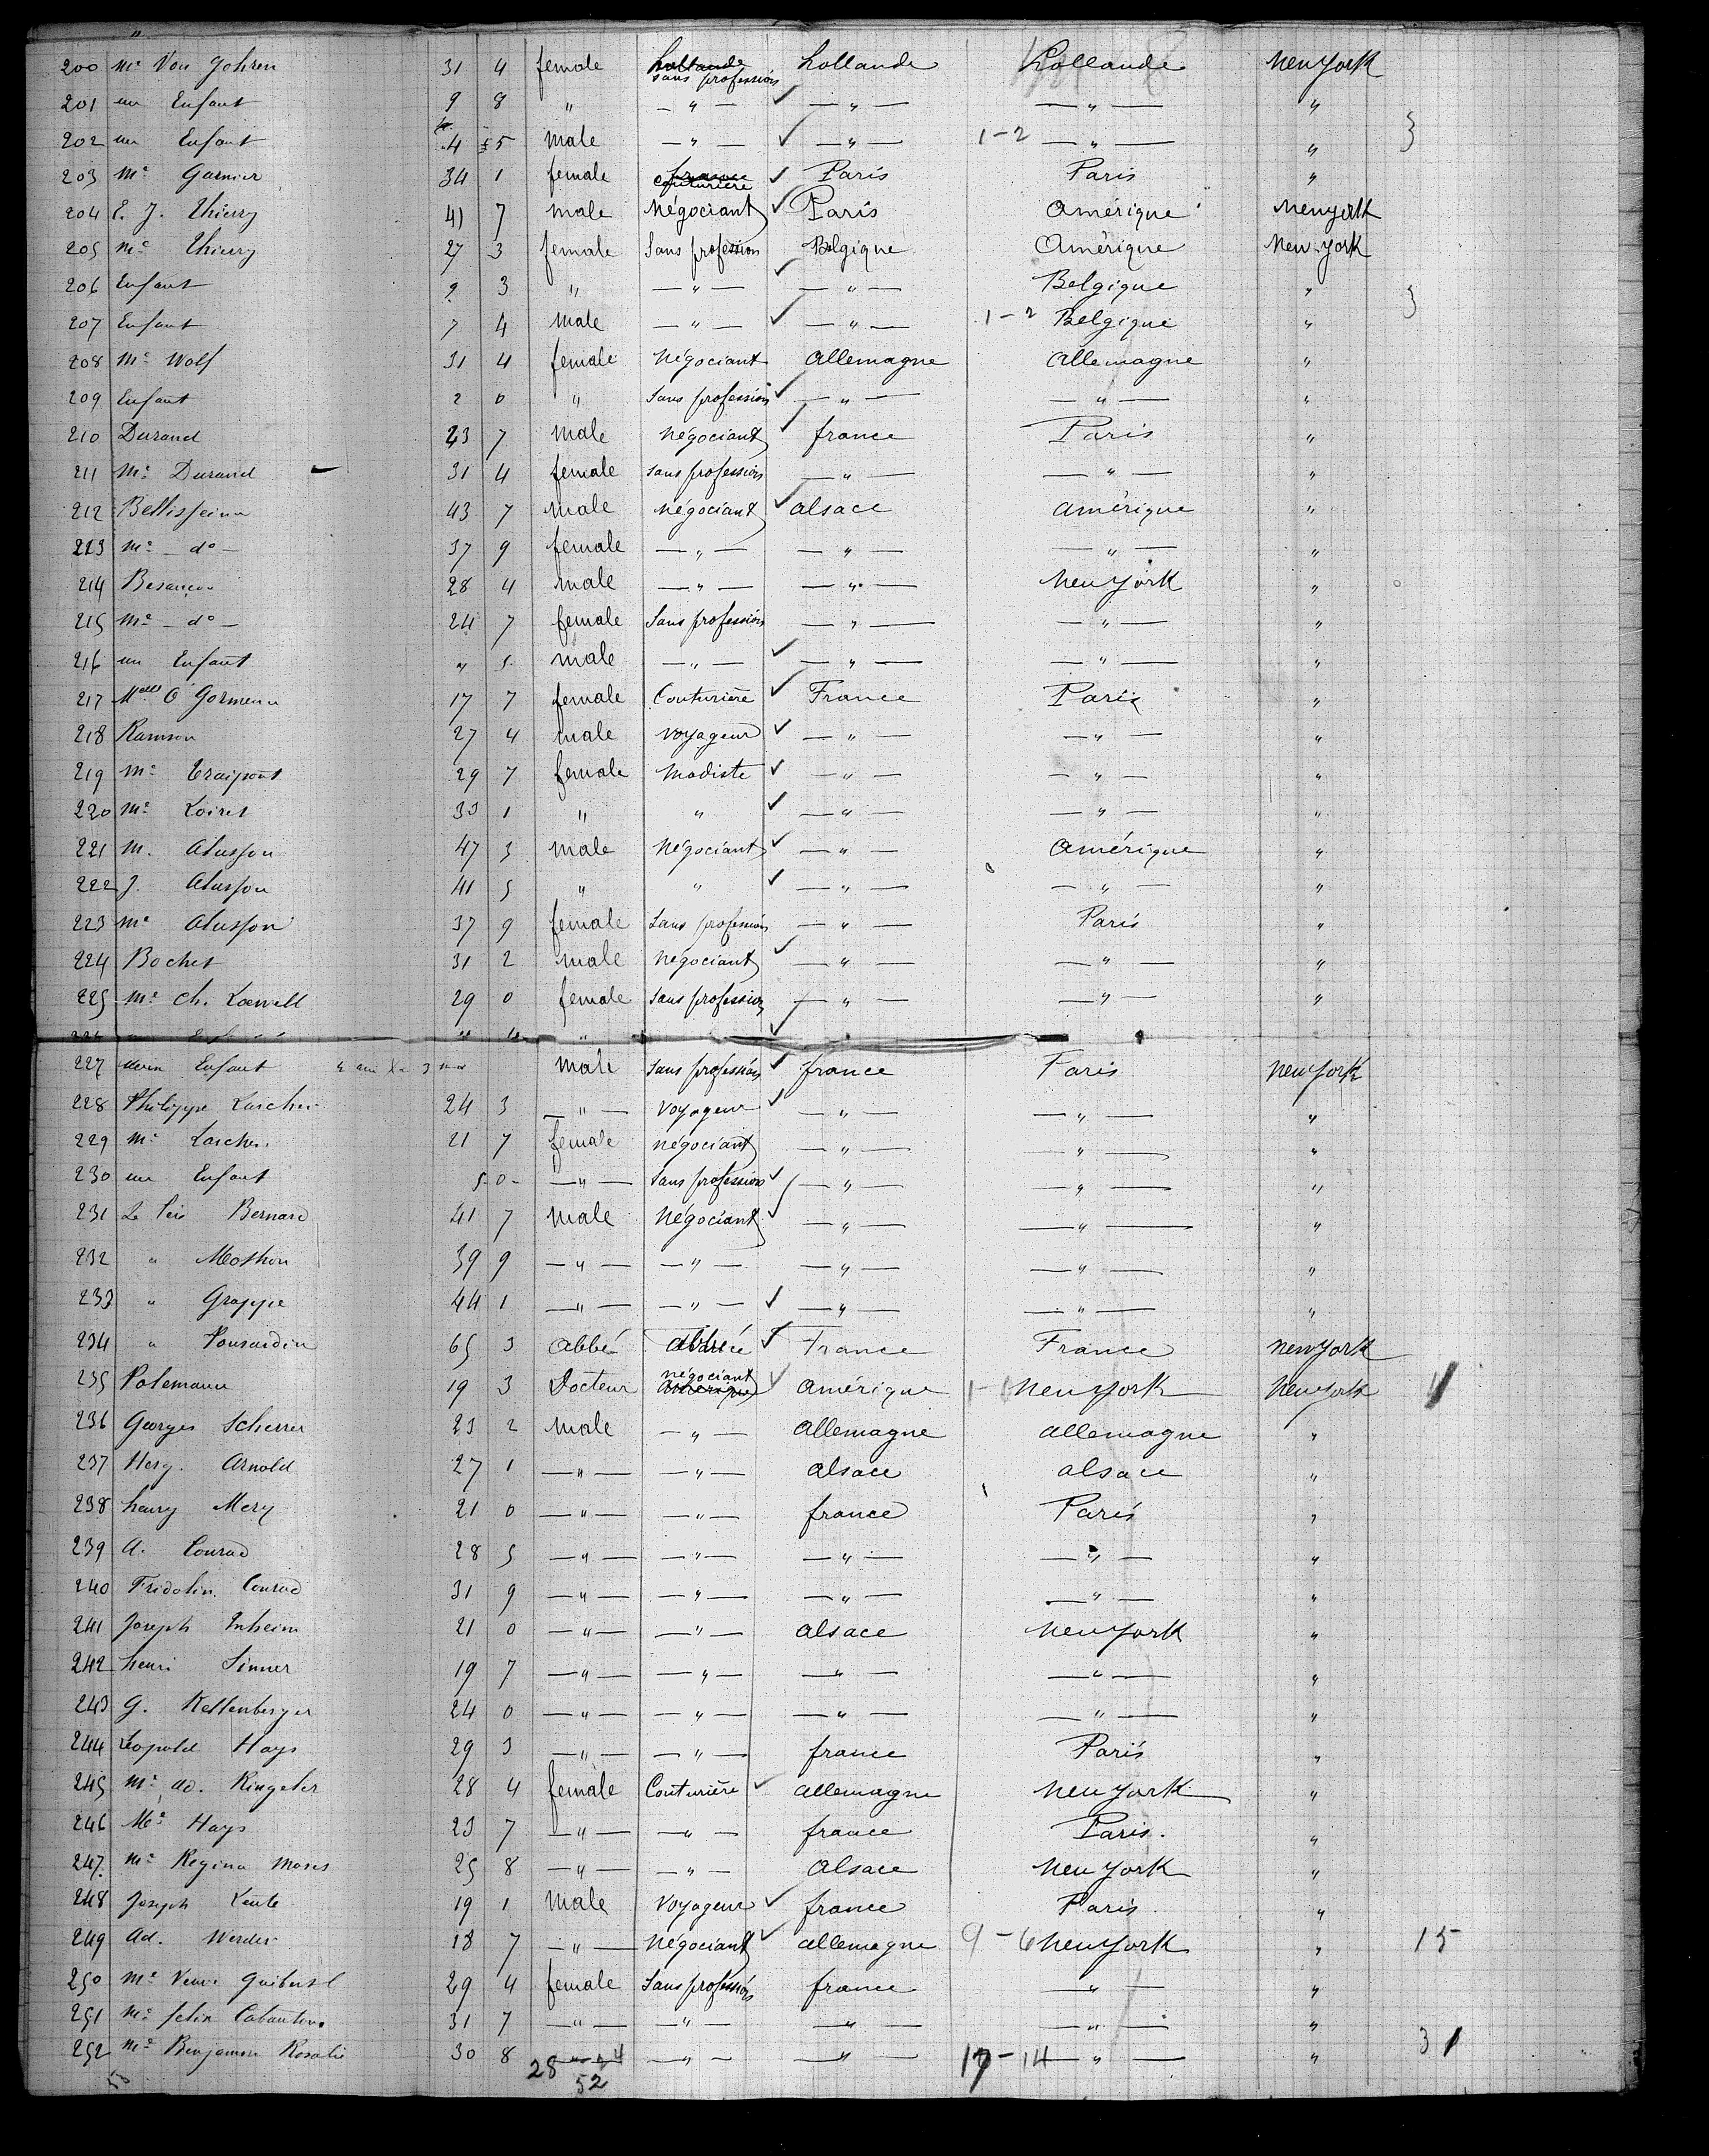 200 Me Von Gohren 31 4 female hollande sans profession hollande hollande New York
201 un Enfant 9 8 " — " — — " — — " — "
202 un Enfant 4 5 male — " — — " — 1-2 — " — "
203 Me Garnier 34 1 female france couturière Paris Paris "
204 E. J. Thierry 41 7 male Négociant Paris Amérique New york
205 Me Thierry 27 3 female Sans profession Belgique Amérique New-york
206 Enfant 9 3 " — " — — " — Belgique "
207 Enfant 7 4 male — " — — " — 1-2 Belgique "
208 Me Wolf 31 4 female Négociant Allemagne Allemagne "
209 Enfant 2 0 " Sans profession — " — — " — "
210 Durand 43 7 male Négociant france Paris "
211 Me Durand 31 4 female sans profession — " — — " — "
212 43 7 male Négociant alsace amérique "
213 Me — do — 37 9 female — " — — " — — " — "
214 Besançon 28 4 male — " — — " — New York "
215 Me — do — 24 7 female Sans profession — " — — " — "
216 un Enfant " 5 male — " — — " — — " — "
217 Melle O'Gormenn 17 7 female Couturière France Paris "
218 Ramson 27 4 male voyageur — " — — " — "
219 Me Traipont 29 7 female Modiste — " — — " — "
220 Me Loiret 33 1 " " — " — — " — "
221 M. Alusson 47 3 male Négociant — " — Amérique "
222 J. Alusson 41 5 " " — " — — " — "
223 Me Alusson 37 9 female Sans profession — " — Paris "
224 Bochet 31 2 male Négociant — " — — " — "
225 Me Ch. 29 0 female Sans profession — " — — " — "
227 Enfant male Sans profession france Paris New york
228 Philippe Larcher 24 3 — " — Voyageur — " — — " — "
229 Me Larcher 21 7 female négociant — " — — " — "
230 un Enfant 5 - 0 - — " — Sans profession — " — — " — "
231 Bernard 41 7 male Négociant — " — — " — "
232 " Mothon 39 9 — " — — " — — " — — " — "
233 " Grappe 44 1 — " — — " — — " — — " — "
234 " Poursardin 65 3 Abbé France France New york
235 Polemann 19 3 Docteur négociant Amérique 1- New york New york
236 Georges Scherrer 23 2 Male — " — Allemagne allemagne "
237 Arnold 27 1 — " — — " — alsace alsace "
238 henry Mery 21 0 — " — — " — france Paris "
239 A. Conrad 28 5 — " — — " — — " — — " — "
240 Fridolin Conrad 31 9 — " — — " — — " — — " — "
241 Joseph Inheim 21 0 — " — — " — alsace New york "
242 henri Sinner 19 7 — " — — " — — " — — " — "
243 G. Keltenberger 24 0 — " — — " — — " — — " — "
244 Leopold Hays 29 3 — " — — " — france Paris "
245 Me ad. Ringeler 28 4 female Couturière allemagne New york "
246 Me Hays 23 7 — " — — " — france Paris. "
247. Me Regina Moses 25 8 — " — — " — Alsace New york "
248 Joseph 19 1 Male Voyageur france Paris. "
249 Ad. Werder 18 7 — " — Négociant allemagne 9-6 New york " 15
250 Me Veuve 29 4 female Sans profession france — " — "
251 Me felix 31 7 — " — — " — — " — — " — "
252 Me Benjamin Rosalie 30 8 — " — — " — — " — 17-14 — " — " 31
28 24
52